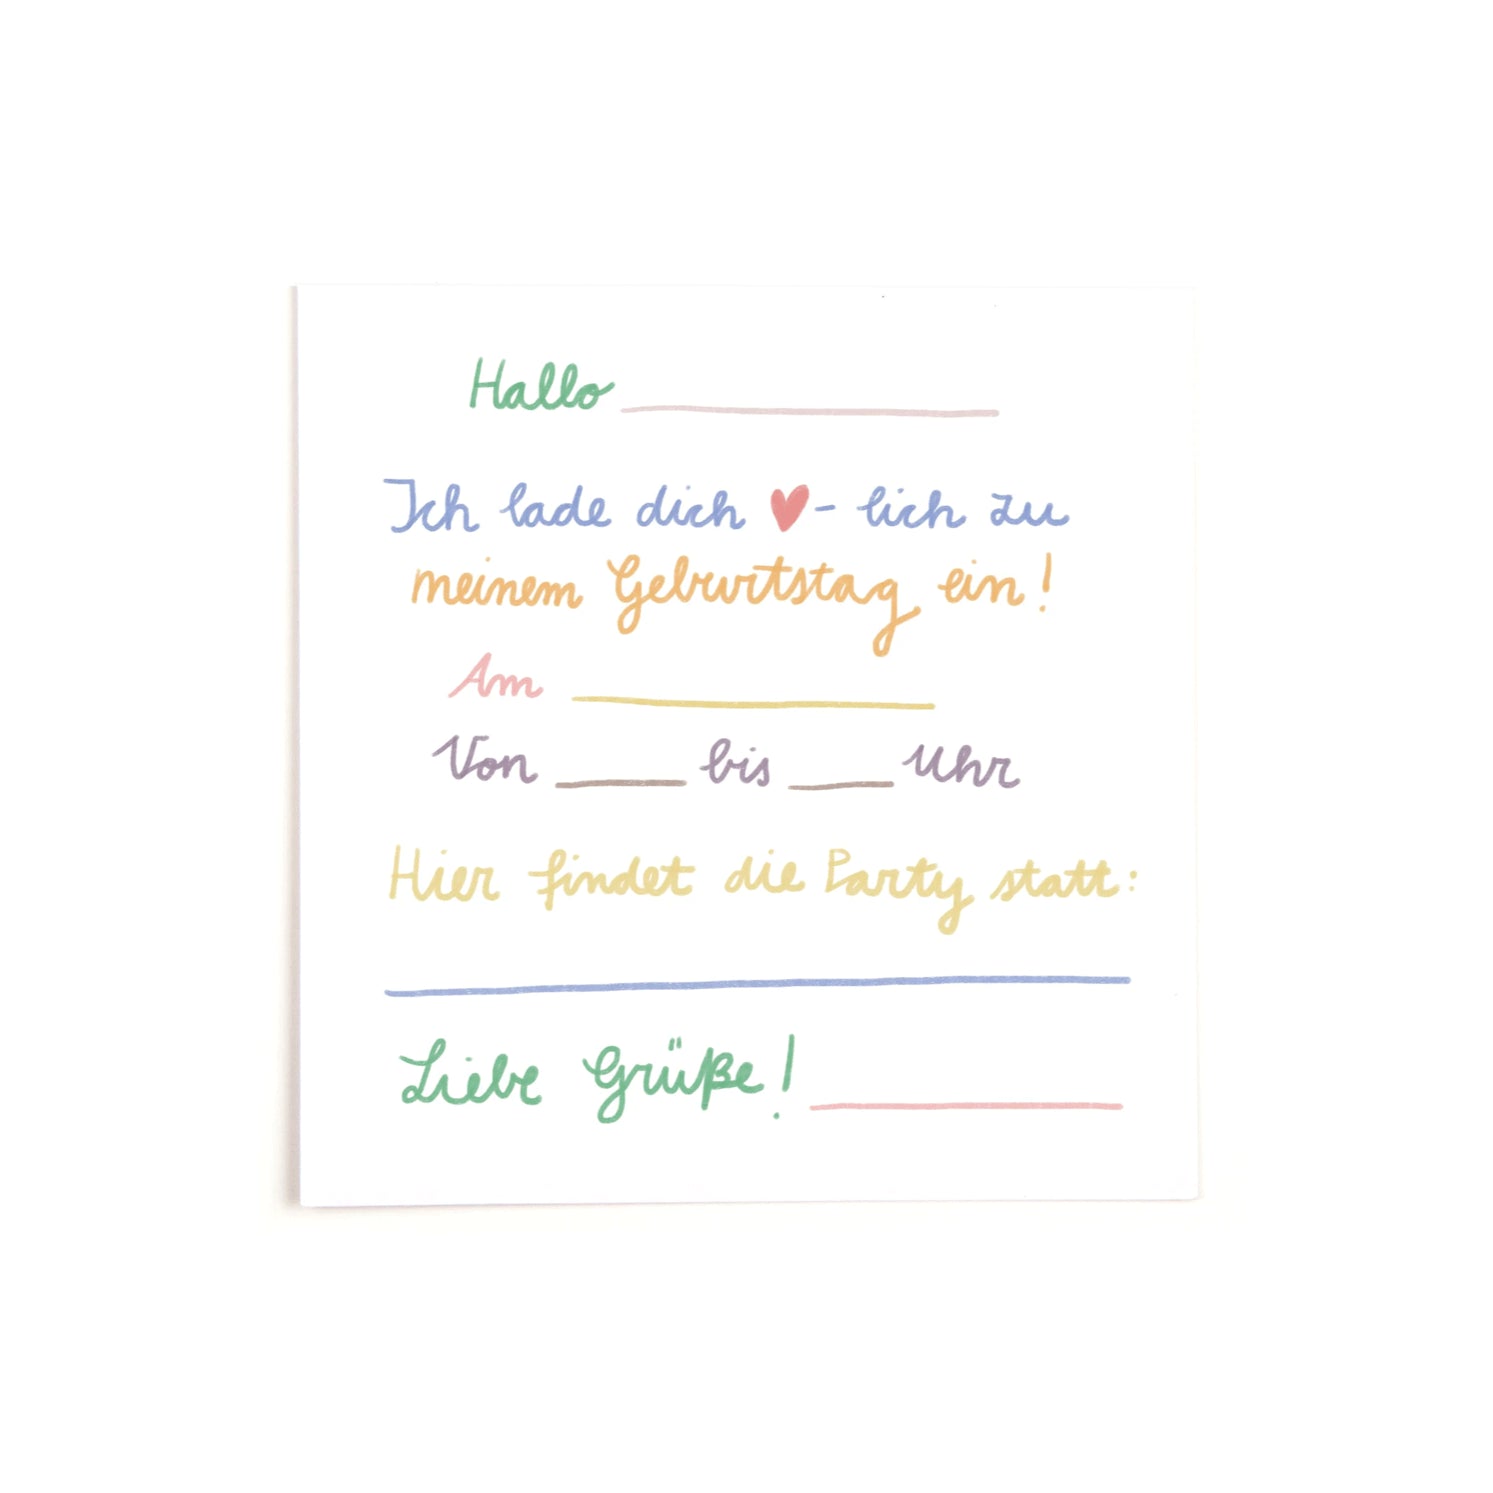 Hallo ____________
Ich lade dich ♥- lich zu
meinem Geburtstag ein!
Am ____________
Von ____ bis ____ Uhr
Hier findet die Party statt:
________________________
Liebe Grüße! __________